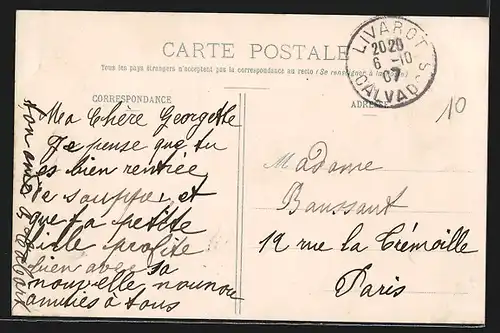 CARTE POSTALE
Tous les pays étrangers n'acceptent pas la correspondance au recto (Se renseigner à la
CORRESPONDANCE
ADRESSE
LIVAROT
20 20
6 -10
07
CALVADOS
10
Ma Chère Georgette
Je pense que tu
es bien rentrée
je suppose, et
que ta petite
fille profite
bien avec sa
nouvelle nounou
amitiés à tous
ton amie
Madame
Baussant
12 rue la Trémoille
Paris